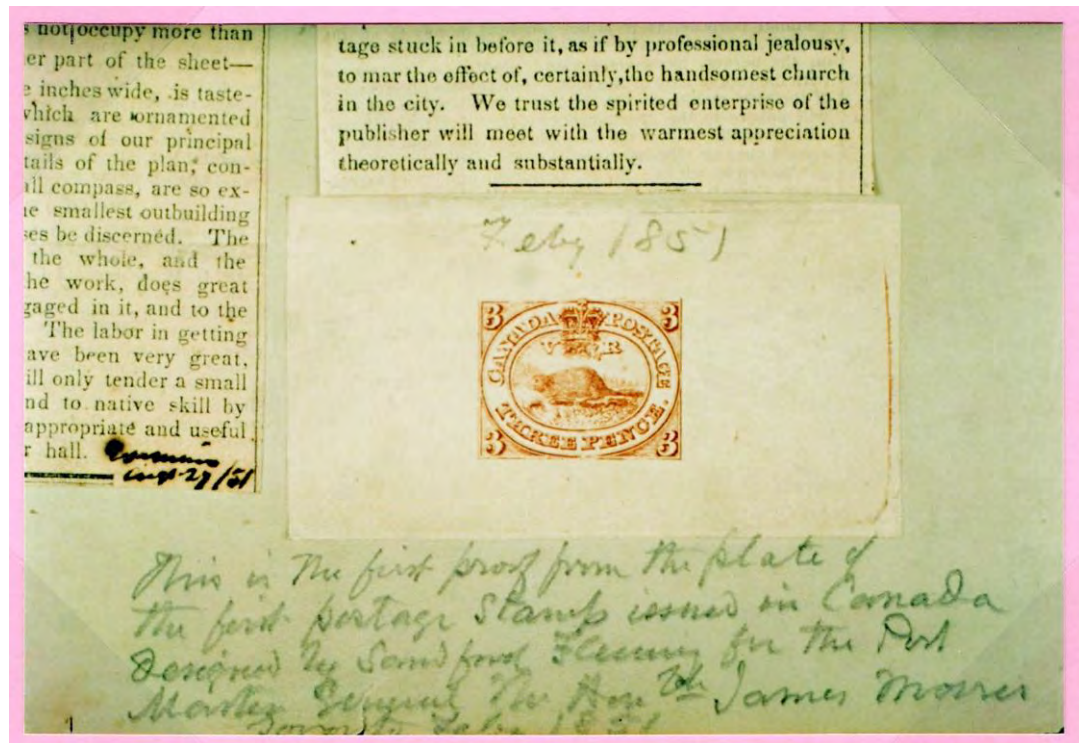 not occupy more than
er part of the sheet—
inches wide, is taste-
which are ornamented
signs of our principal
tails of the plan, con-
ll compass, are so ex-
e smallest outbuilding
ses be discerned. The
the whole, and the
he work, does great
gaged in it, and to the
The labor in getting
ave been very great,
ill only tender a small
nd to native skill by
appropriate and useful
r hall.
27/51
tage stuck in before it, as if by professional jealousy,
to mar the effect of, certainly, the handsomest church
in the city. We trust the spirited enterprise of the
publisher will meet with the warmest appreciation
theoretically and substantially.
Feby 1851
3 3
CANADA POSTAGE
V R
THREE PENCE.
3 3
This is the first proof from the plate of
the first postage stamp issued in Canada
Designed by Sandford Fleming for the Post
Master General The Honble James Morris
Toronto Feby 1851
1